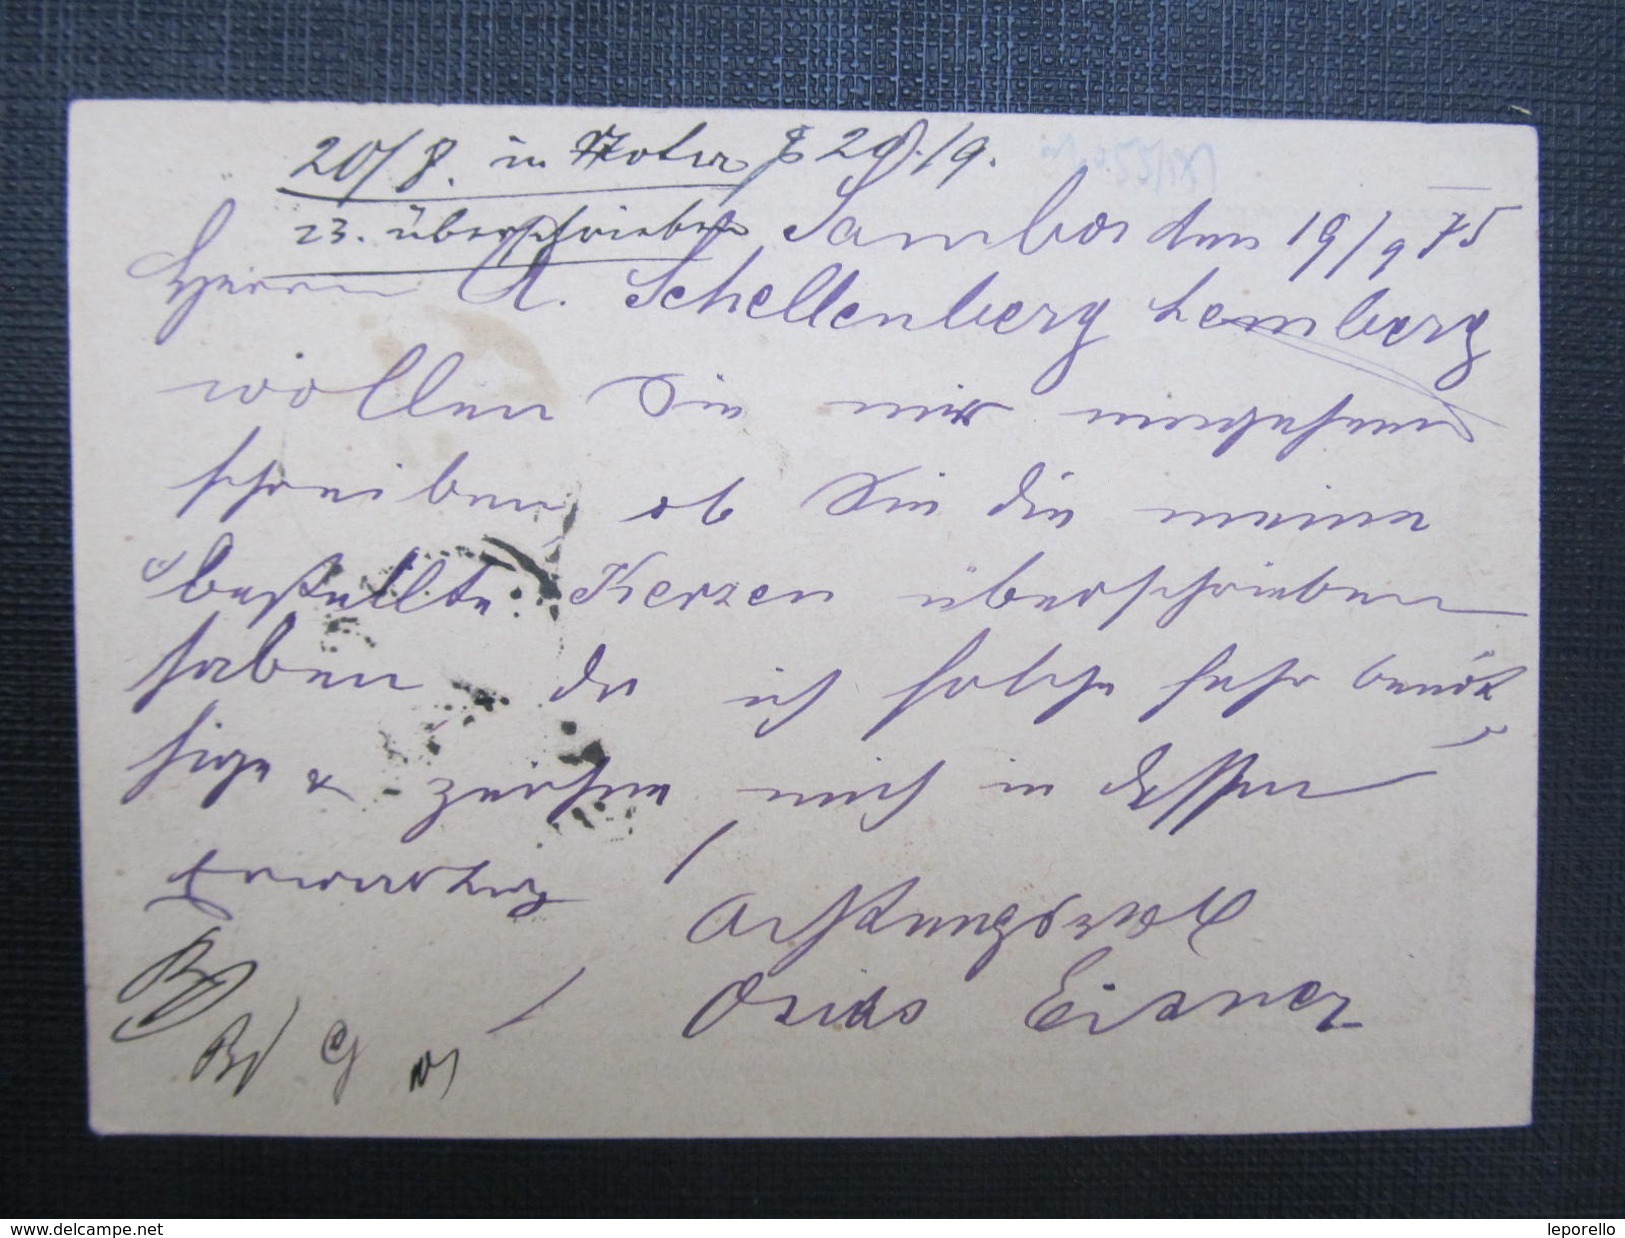 20/8. in Nota B 20/9.
23. überschrieben
Sambor den 19/9 75
Herrn A. Schellenberg Lemberg
wollen Sie mir umgehend
schreiben ob Sie die meine
bestellte Kerzen überschrieben
haben da ich solche sehr benöt
hige & zeichne mich in dessen
Erwartung
Achtungsvoll
Osias Eisner
www.delcampe.net
leporello